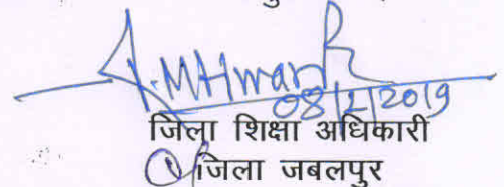 08/2/2019
जिला शिक्षा अधिकारी
जिला जबलपुर